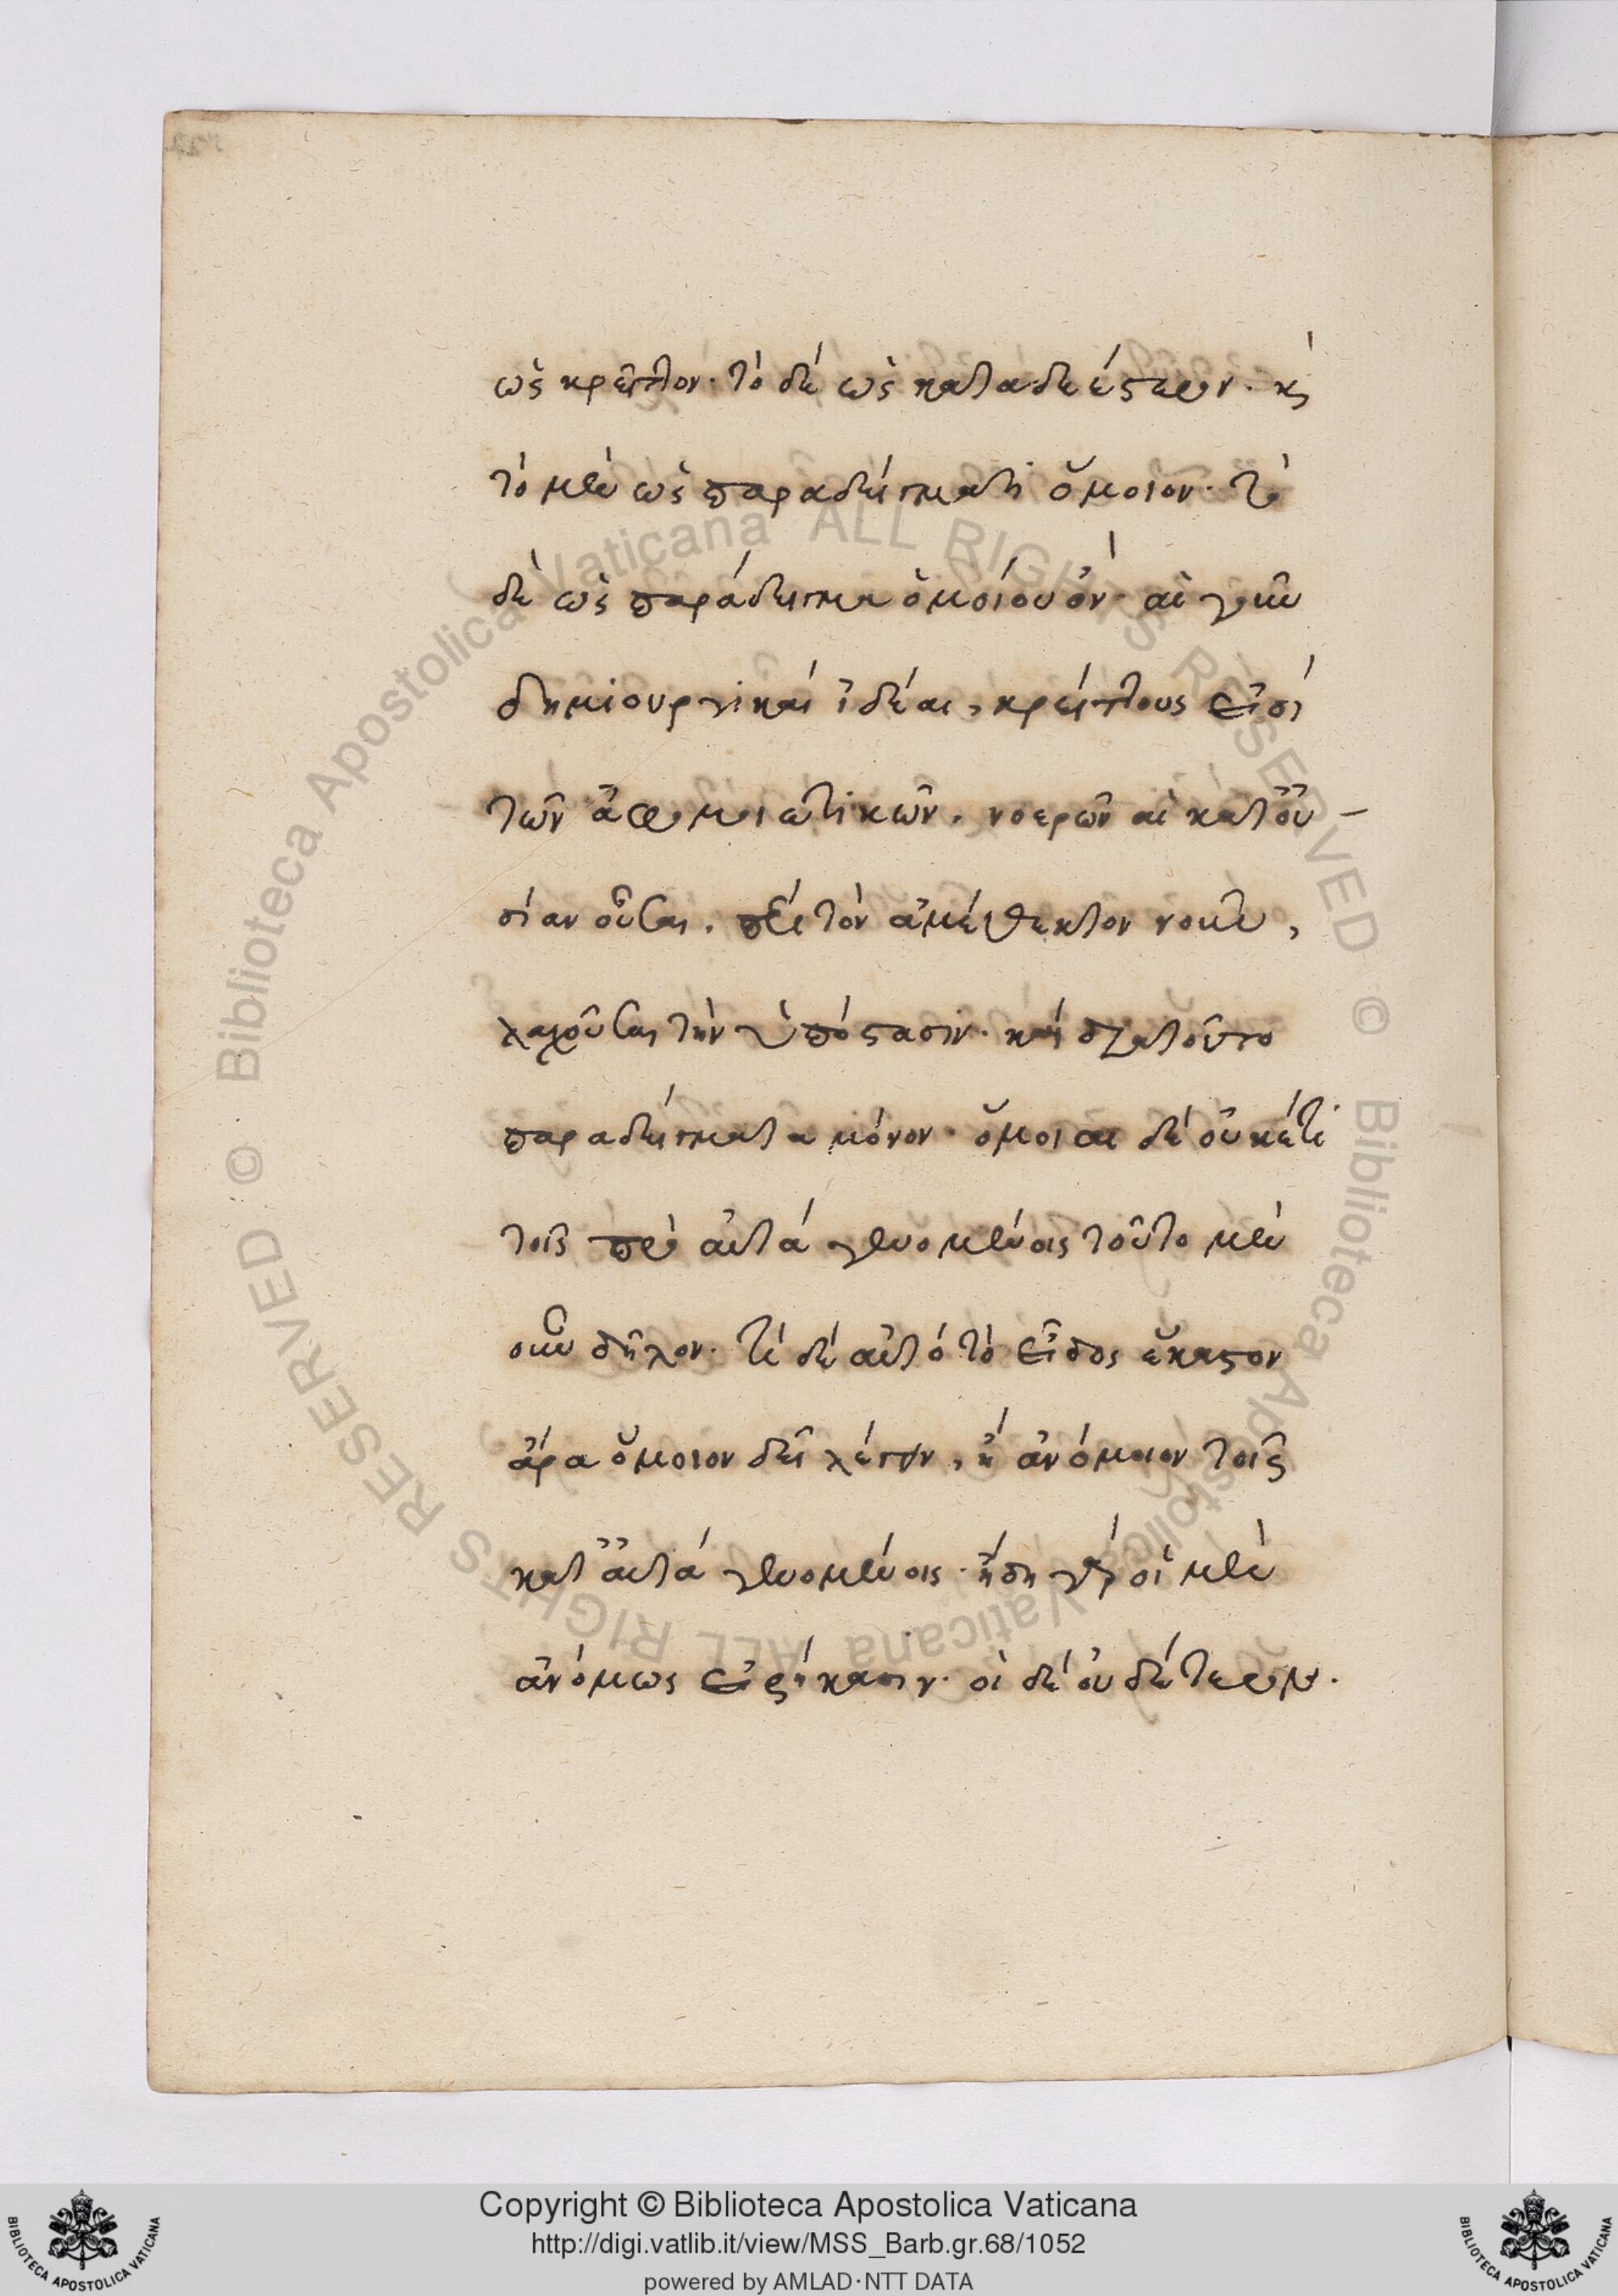 ὡς κρεῖττον· τὸ δὲ ὡς καταδεέστερον· καὶ
τὸ μὲν ὡς παραδείγματι ὅμοιον· τὸ
δὲ ὡς παράδειγμα ὁμοίου ὂν· αἱ γοῦν
δημιουργικαὶ ἰδέαι, κρείττους εἰσὶ
τῶν ἀφομοιωτικῶν, νοερῶν αἱ κατ' οὐ-
σίαν οὖσαι, περὶ τὸν ἀμέθεκτον νοῦν,
λαχοῦσαι τὴν ὑπόστασιν· καὶ διὰ τοῦτο
παραδείγματα μόνον· ὅμοιαι δὲ οὐκέτι
τοῖς πρὸ αὐτὰ γενομένοις τοῦτο μὲν
οὖν δῆλον· τί δὲ αὐτὸ τὸ εἶδος ἕκαστον
ἆρα ὅμοιον δεῖ λέγειν, ἢ ἀνόμοιον τοῖς
κατ' αὐτὰ γενομένοις· ἤδη γὰρ οἱ μὲν
ἀνόμως εἰρήκασιν· οἱ δὲ οὐδέτερον.
Copyright © Biblioteca Apostolica Vaticana
http://digi.vatlib.it/view/MSS_Barb.gr.68/1052
powered by AMLAD·NTT DATA